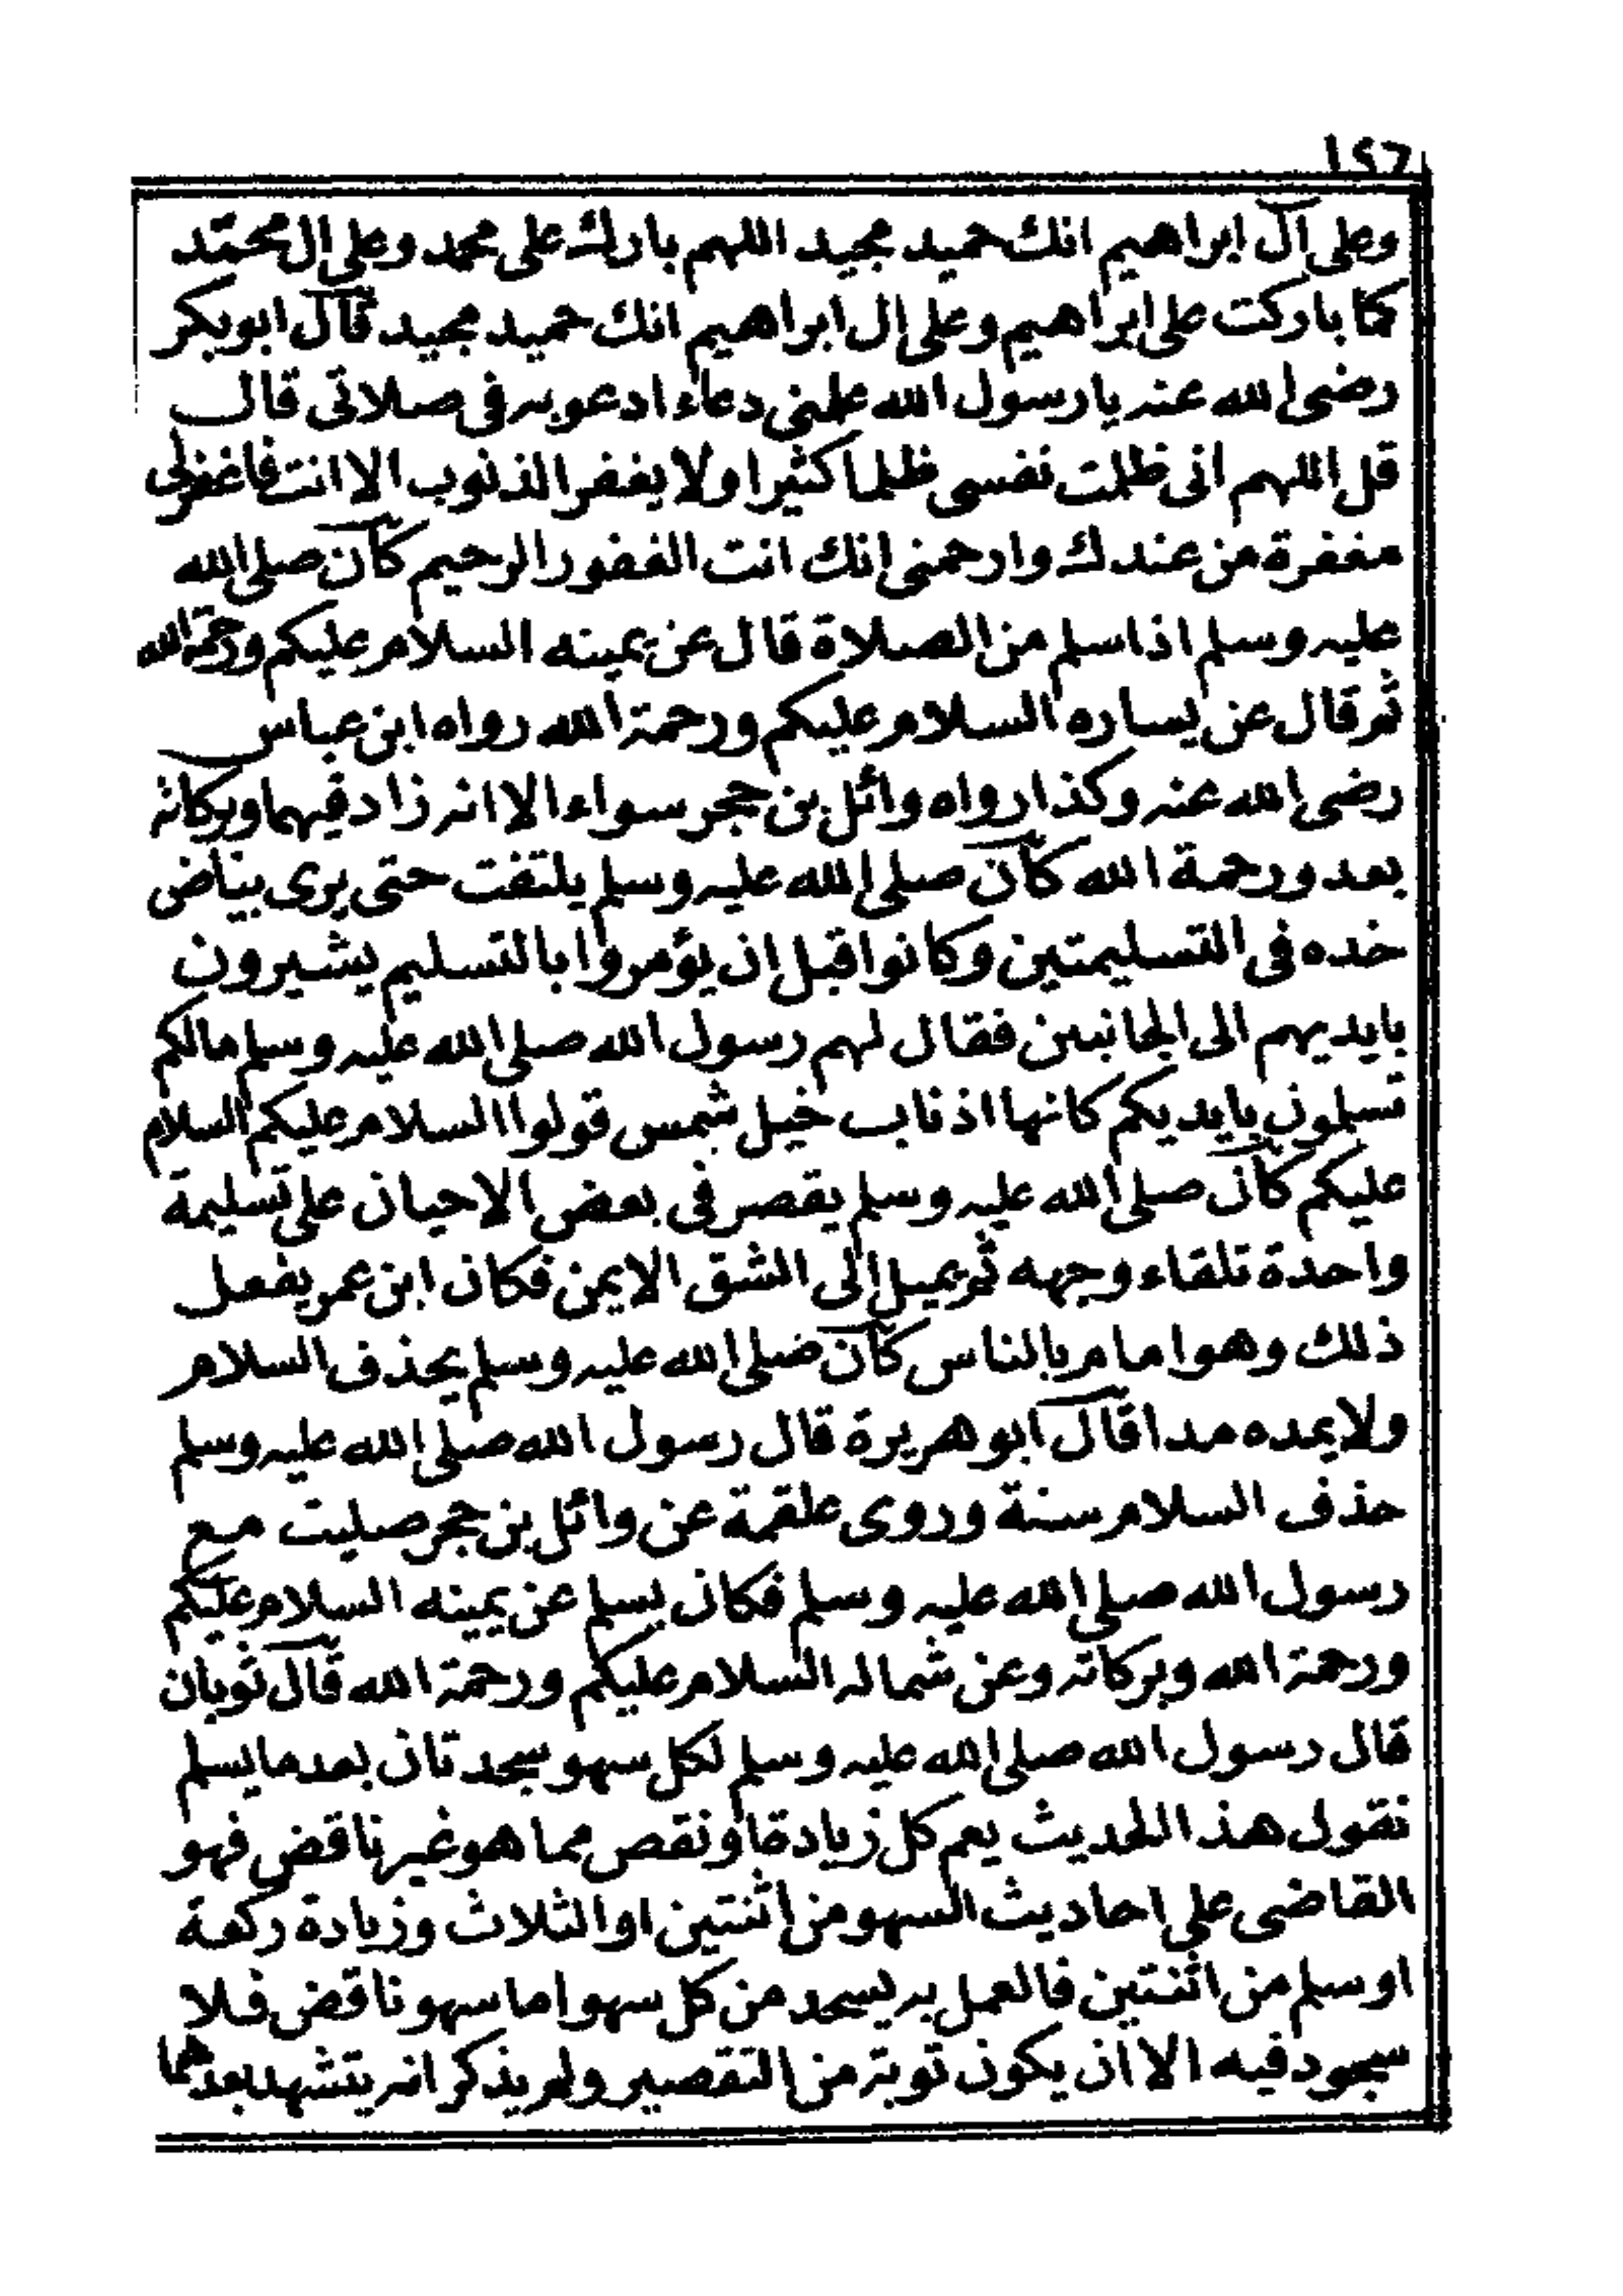 ١٢٦
وعلى آل ابراهيم انك حميد مجيد اللهم بارك على محمد وعلى ال محمد
كما باركت على ابراهيم وعلى ال ابراهيم انك حميد مجيد قال ابوبكر
رضى الله عنه يا رسول الله علمنى دعاء ادعو به فى صلاتى قال
قل اللهم انى ظلمت نفسى ظلما كثيرا ولا يغفر الذنوب الا انت فاغفرلى
مغفرة من عندك وارحمنى انك انت الغفور الرحيم كان صلى الله
عليه وسلم اذا سلم من الصلاة قال عن يمينه السلام عليكم ورحمة الله
ثم قال عن يساره السلام عليكم ورحمة الله رواه ابن عباس
رضى الله عنه وكذا رواه وائل بن حجر سواء الا انه زاد فيهما وبركاته
بعد ورحمة الله كان صلى الله عليه وسلم يلتفت حتى يرى بياض
خده فى التسليمتين وكانوا قبل ان يؤمروا بالتسليم يشيرون
بايديهم الى الجانبين فقال لهم رسول الله صلى الله عليه وسلم مالكم
تسلمون بايديكم كانها اذناب خيل شمس قولوا السلام عليكم السلام
عليكم كان صلى الله عليه وسلم يقصر فى بعض الاحيان على تسليمة
واحدة تلقاء وجهه ثم يميل الى الشق الايمن فكان ابن عمر يفعل
ذلك وهو امام بالناس كان صلى الله عليه وسلم يحذف السلام
ولا يمده مدا قال ابو هريرة قال رسول الله صلى الله عليه وسلم
حذف السلام سنة وروى علقمة عن وائل بن حجر صليت مع
رسول الله صلى الله عليه وسلم فكان يسلم عن يمينه السلام عليكم
ورحمة الله وبركاته وعن شماله السلام عليكم ورحمة الله قال ثوبان
قال رسول الله صلى الله عليه وسلم لكل سهو سجدتان بعد ما يسلم
نقول هذا الحديث يعم كل زيادة او نقص مما هو غير ناقض فهو
القاضى على احاديث السهو من اثنتين او الثلاث وزيادة ركعة
او سلم من اثنتين فالعمل به يسجد من كل سهو اما سهو ناقض فلا
سجود فيه الا ان يكون توبة من التقصير ولم يذكر انه يتشهد بعدهما